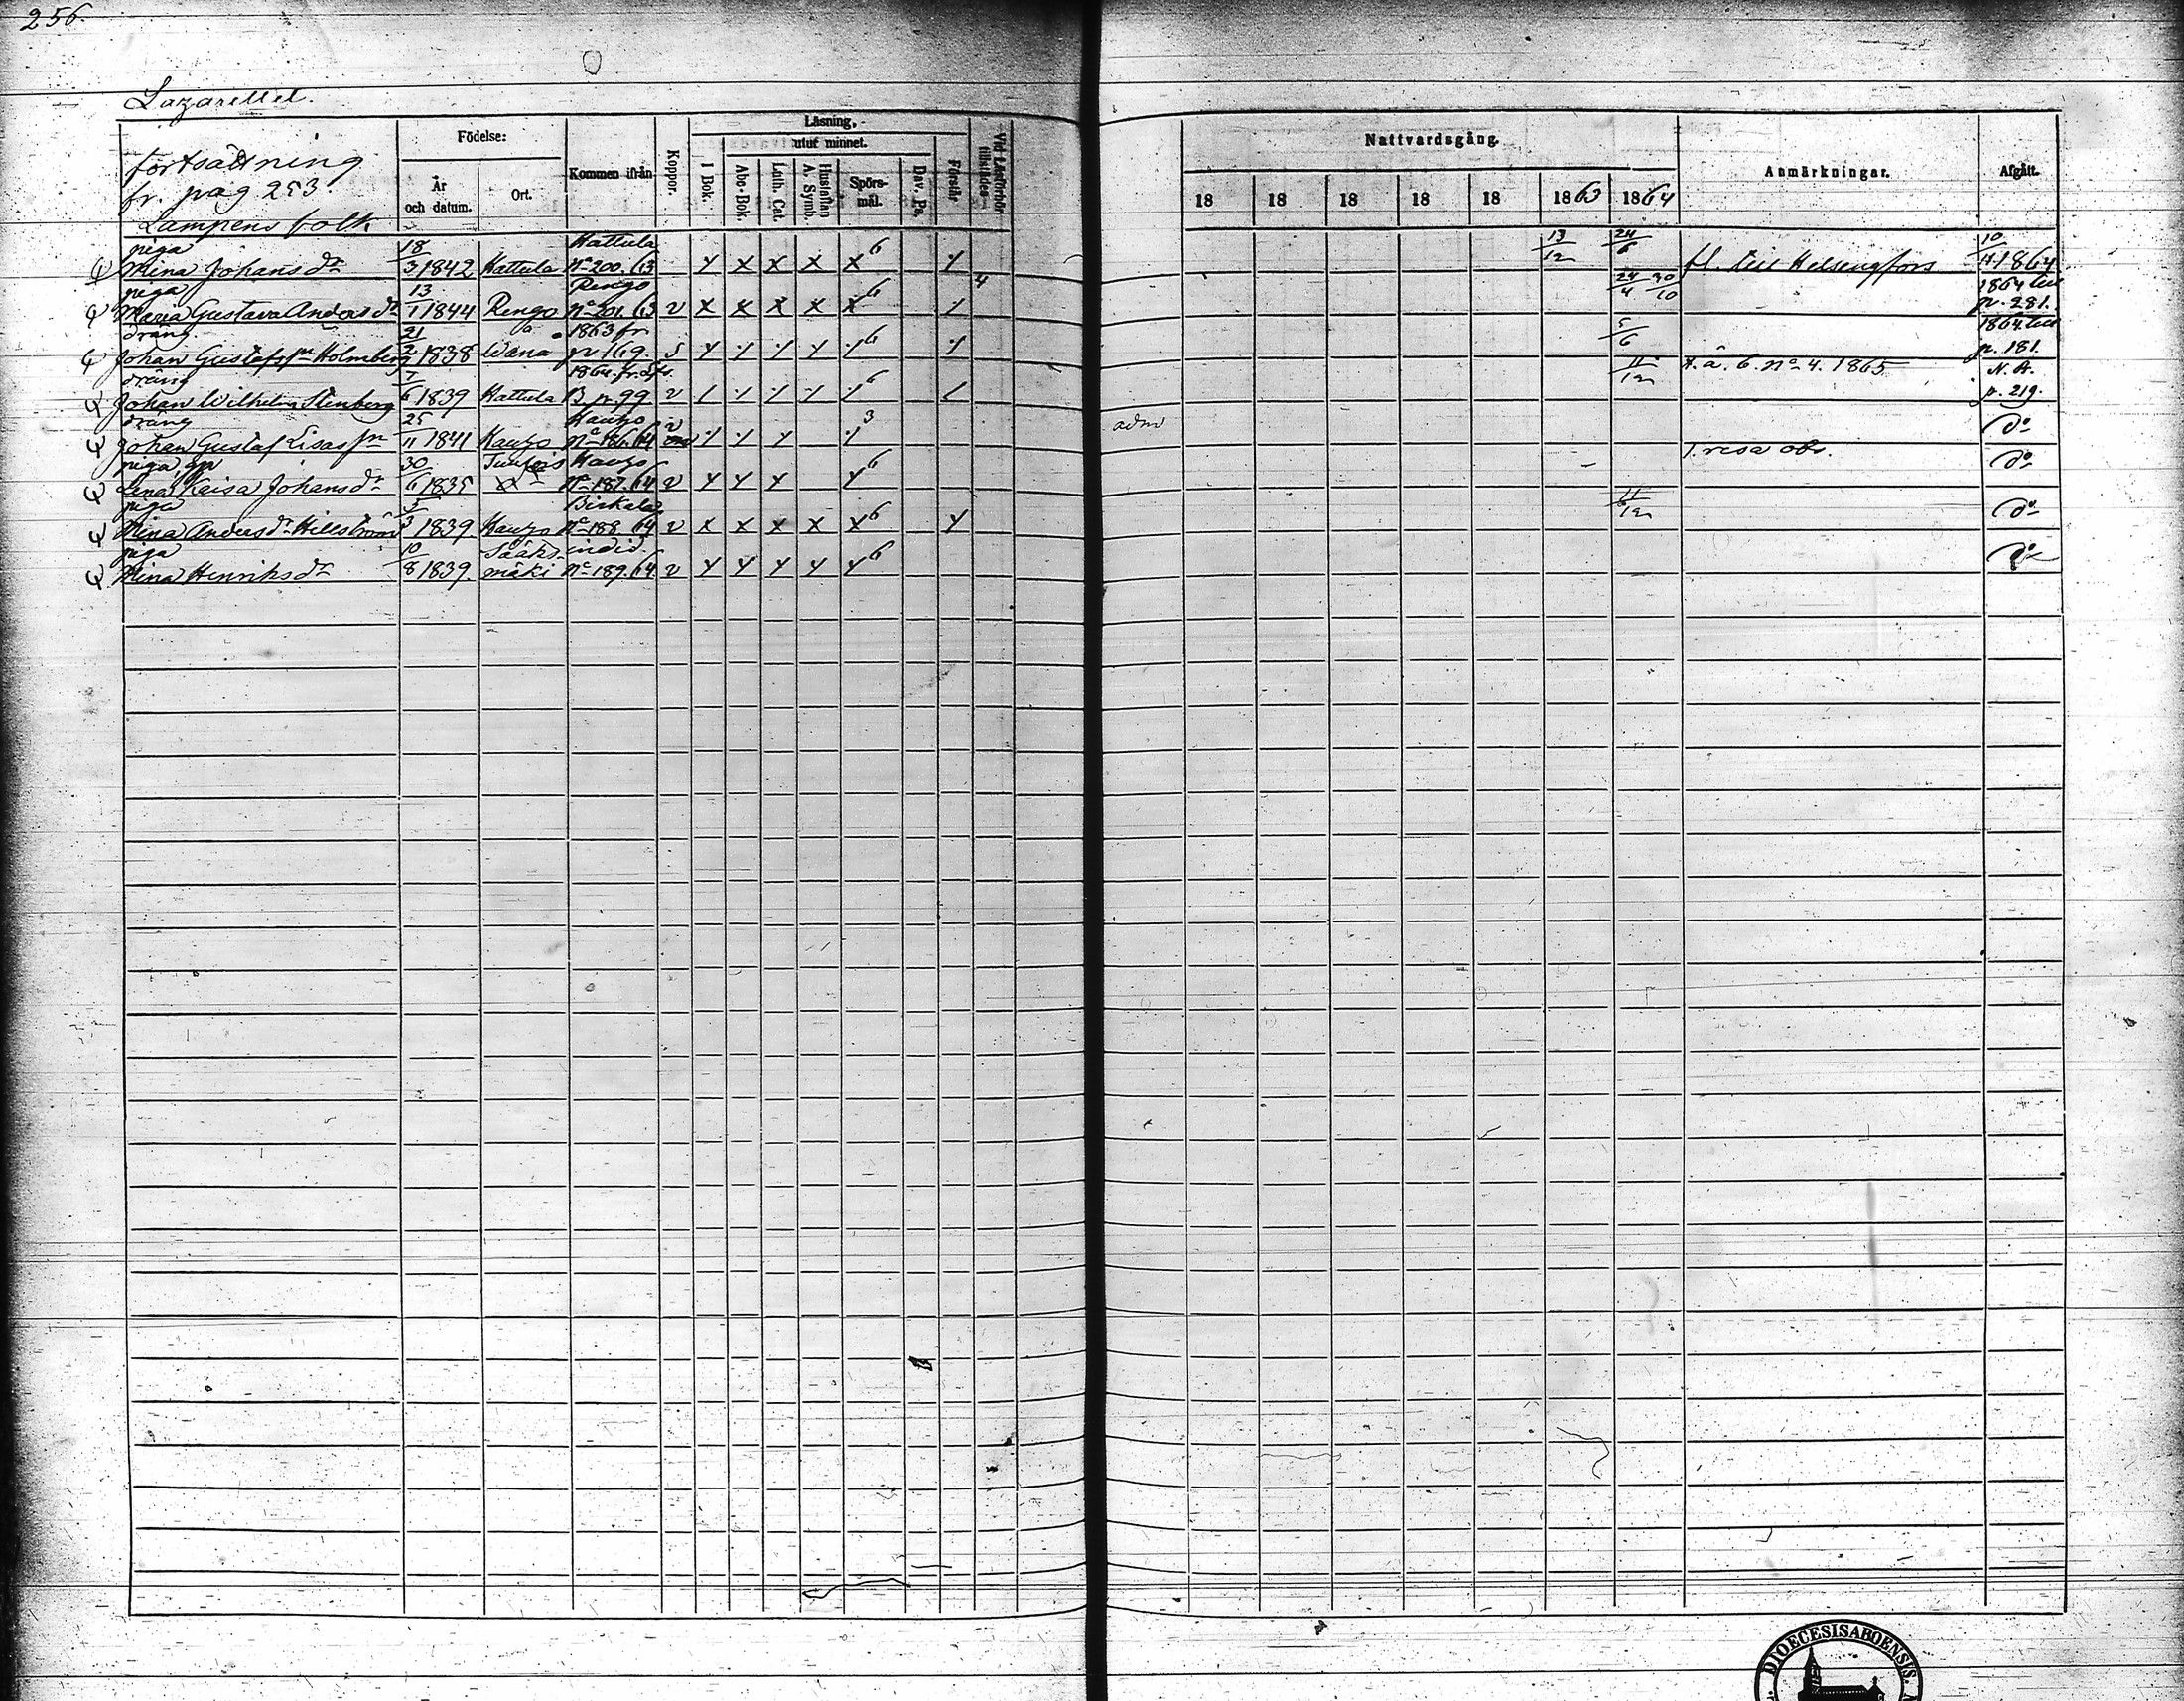 256
Lazarettet.
fortsättning
fr. pag 253
Lampens folk
Födelse:
År och datum.
Ort.
Kommen ifrån
Koppor.
Läsning,
utur minnet.
I Bok.
Abc-Bok.
Luth. Cat.
Hustaflan A. Symb.
Spörs-mål.
Dav. Ps.
Förstår
Vid Läsförhör tillstädes
Nattvardsgång.
18 18 18 18 18 1863 1864
Anmärkningar.
Afgått.
piga 18 Hattula 13 24 10
Mina Johans dr 3 1842 Hattula No 200. 63 y x x x x 6 y 12 6 fl. till Helsingfors 11 1864
piga 13 Rengo 4 24 30 1864 till
Maria Gustava Anders dr 1 1844 Rengo No 201. 63 v x x x x x 6 / 4 10 p. 281.
dräng 21 1863 fr 5 1864 till
Johan Gustafs sn Holmberg 2 1838 Wånå p 169. s y y y y y 6 y 6 p. 181.
dräng 7 1864 fr. 11 A. å. b. No 4. 1865 N. A.
Johan Wilhelm Stenberg 6 1839 Hattula B p 99 v / y y y y 6 / 12 p. 219.
dräng 25 Hauho v
Johan Gustaf Lisas sn 11 1841 Hauho No 186. 64 y y y y 3 adm do
piga 30 Hauho 1. resa obs.
Lena Kaisa Johans dr 6 1835 No 187. 64 v y y y y 6 do
piga 5 Birkala 11
Mina Anders dr Hellström 3 1839 Hauho No 188. 64 v x x x x x 6 y 12 do
piga 10 Sääks-
Mina Henriks dr 8 1839. mäki No 189. 64 v y y y y y 6 do
DIOECESIS ABOENSIS.